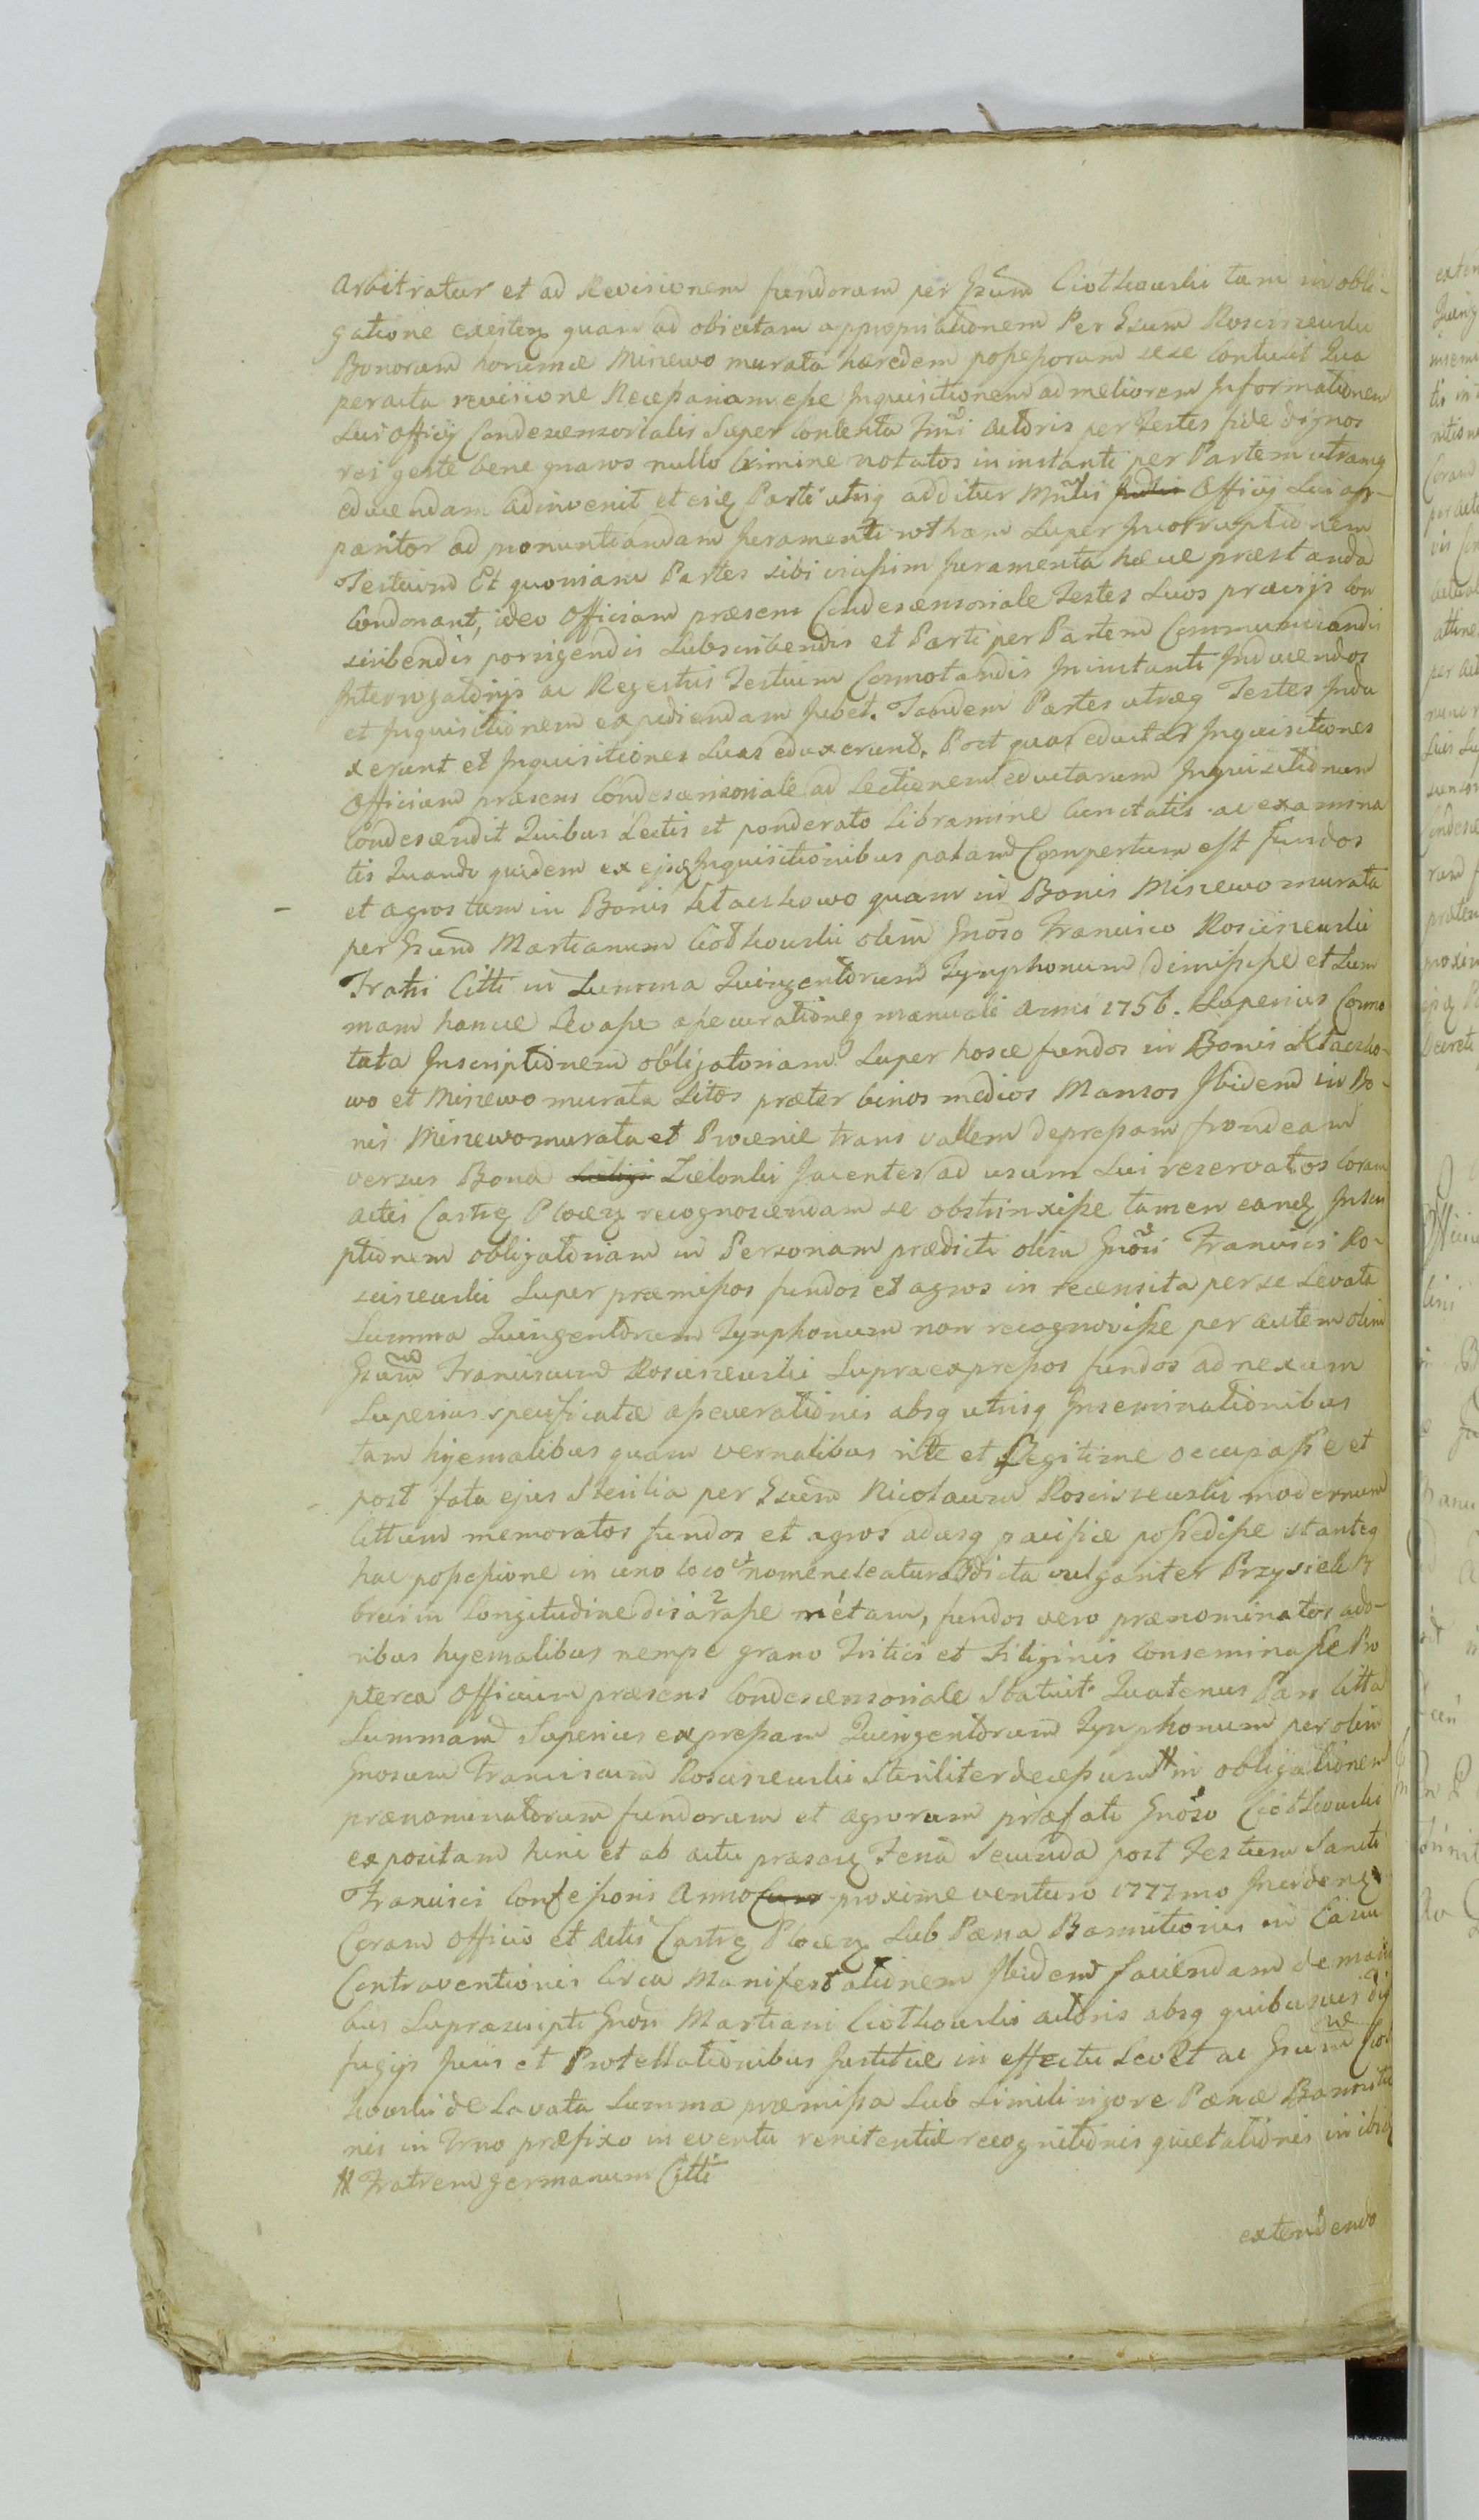 arbitratur et ad Revisionem fundorum per Gsum Ciotkowski tam in obli-
gatione existen quam ad obiectam appropriationem Per Gsum Rosciszewski
Bonorum horumce Miszewo murata hæredem possessorum sese contulit Qua
peracta revisione Necessariam esse Inquisitionem ad meliorem Informationem
sui Officij Condescensorialis super contenta Actoris per Testes fide dignos
rei geste bene gnaros nullo Crimine notatos in instanti per Partem utramq
educendam adinvenit et Parti utriq additur Officij sui ap-
paritor ad pronuntiandam Juramenti rotham super Incorruptionem
Testium Et quoniam Partes sibi invicem Juramenta hæcce præstanda
Condonant, ideo Officium præsens Condescensoriale Testes suos prævijs con
scribendis porrigendis subscribendis et Parti per Partem Communicandis
Interrogatorijs ac Regestris Testium Connotandis in instanti Inducendos
et Inquisitionem expediendam Jubet. Tandem Partes utræq Testes Indu
xerunt et Inquisitiones suas eduxerunt. Post quas eductas Inquisitiones
Officium præsens Condescensoriale ad Lectionem eductarum Inquisitionum
Condescendit Quibus Lectis et ponderato Libramine Cunctatis ac examina
tis Quando quidem ex ejsq Inquisitionibus palam Compertum est fundos
et agros tam in Bonis Ktaczkowo quam in Bonis Miszewo murata
per Gsum Martianum Ciotkowski olim Gnoso Francisco Rosciszewski
Fratri Citti in Summa Quingentorum Tynphonum dimisisse et Sum
mam hancce levasse asseverationeq manuali anni 1756. superius Conno
tata Inscriptionem obligatoriam super hosce fundos in Bonis Ktaczko-
wo et Miszewo murata sitos præter binos medios Mansos Ibidem in Bo-
nis Miszewo murata et trans vallem depressam frondeam
versus Bona Zielonki Jacentes ad usum sui reservatos coram
actis Castrq Plocen recognoscendam se obstrinxisse tamen eandq Inscri
ptionem obligatoriam in Personam prædicti olim Gnosi Francisci Ro-
sciszewski super præmissos fundos et agros in recensita per se levata
Summa Quingentorum Tynphonum non recognovisse per autem olim
Gsum Franciscum Rosciszewski supra expressos fundos ad nexum
superius specificatæ asseverationis absq utrisq Inseminationibus
tam hyemalibus quam vernalibus rite et Legitime occupasse et
post fata ejus sterilia per Gsum Nicolaum Rosciszewski modernum
Cittum memoratos fundos et agros adusq pacifice possedisse stanteq
hac possessione in uno loco nomencleatura dicta vulgariter Przysiek
brevi in Longitudine metam, fundos vero prænominatos ado-
ribus hyemalibus nempe grano Tritici et Siliginis Conseminasse Pro
pterea Officium præsens Condescensoriale Statuit Quatenus Pars Citta
Summam superius expressam Quingentorum Tynphonum per olim
Gnosum Franciscum Rosciszewski Steriliter decessum # in obligationem
prænominatorum fundorum et agrorum præfati Gnoso Ciotkowski
expositam hinc et ab actu præsen Feria Secunda post Festum Sancti
Francisci Confessoris Anno proxime venturo 1777mo
Coram Officio et actis Castrq Plocen sub Pæna Bannitionis in Casu
Contraventionis circa Manifestationem Ibidem faciendam de mani
bus supræscripti Gnosi Martiani Ciotkowski actoris absq quibusvis dif
fugijs Juris et Protellationibus Justitiæ in effectu levet ac Gsum Ciot
kowski de Levata Summa præmissa sub simili rigore Pænæ Bannitio
nis in Trno præfixo in eventu renitentiæ recognitionis quietationis
# Fratrem germanum Citti
extendendo